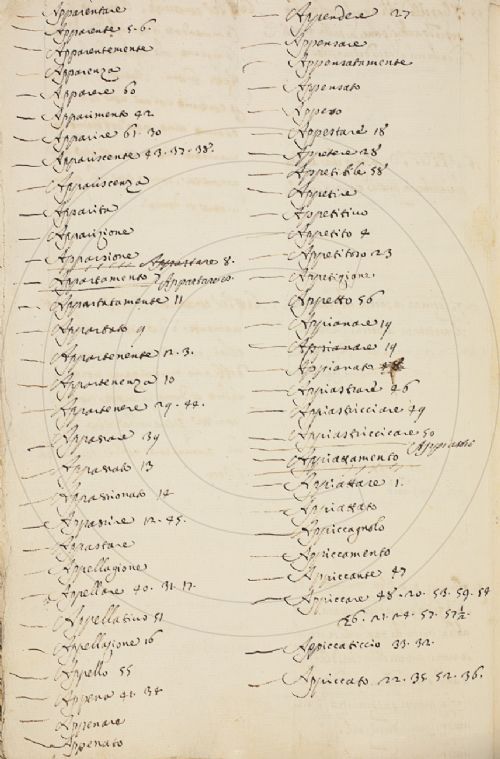 Apparentare
Apparente 5. 6.
Apparentemente
Apparenza
Apparere 60
Apparimento 42
Apparire 61. 30
Appariscente 43. 37. 38.
Appariscenza
Apparita
Apparizione
Apparsione
Appartare 8.
Appartamento
Appartatamente 11
Appartato 9
Appartenente 12. 3.
Appartenenza 10
Appartenere 29. 44.
Appassare 39
Appassato 13
Appassionato 14
Appassire 12. 45.
Appastare
Appellagione
Appellare 40. 31. 17.
Appellativo 51
Appellazione 16
Appello 55
Appena 41. 34.
Appenare
Appenato
Appendere 27
Appensare
Appensatamente
Appensato
Appeso
Appestare 18
Appetere 28
Appetibile 58
Appetire
Appetitivo
Appetito 4
Appetitoso 23
Appetizione
Appetto 56
Appianare 19
Appianare 19
Appianato
Appiastrare 46
Appiastricciare 49
Appiastriccicare 50
Appiattamento
Appiattare 1.
Appiattato
Appiccagnolo
Appiccamento
Appiccante 47
Appiccare 48. 20. 53. 59. 54
56. 21. 24. 57. 57½
Appiccaticcio 33. 32.
Appiccato 22. 35. 52. 36.